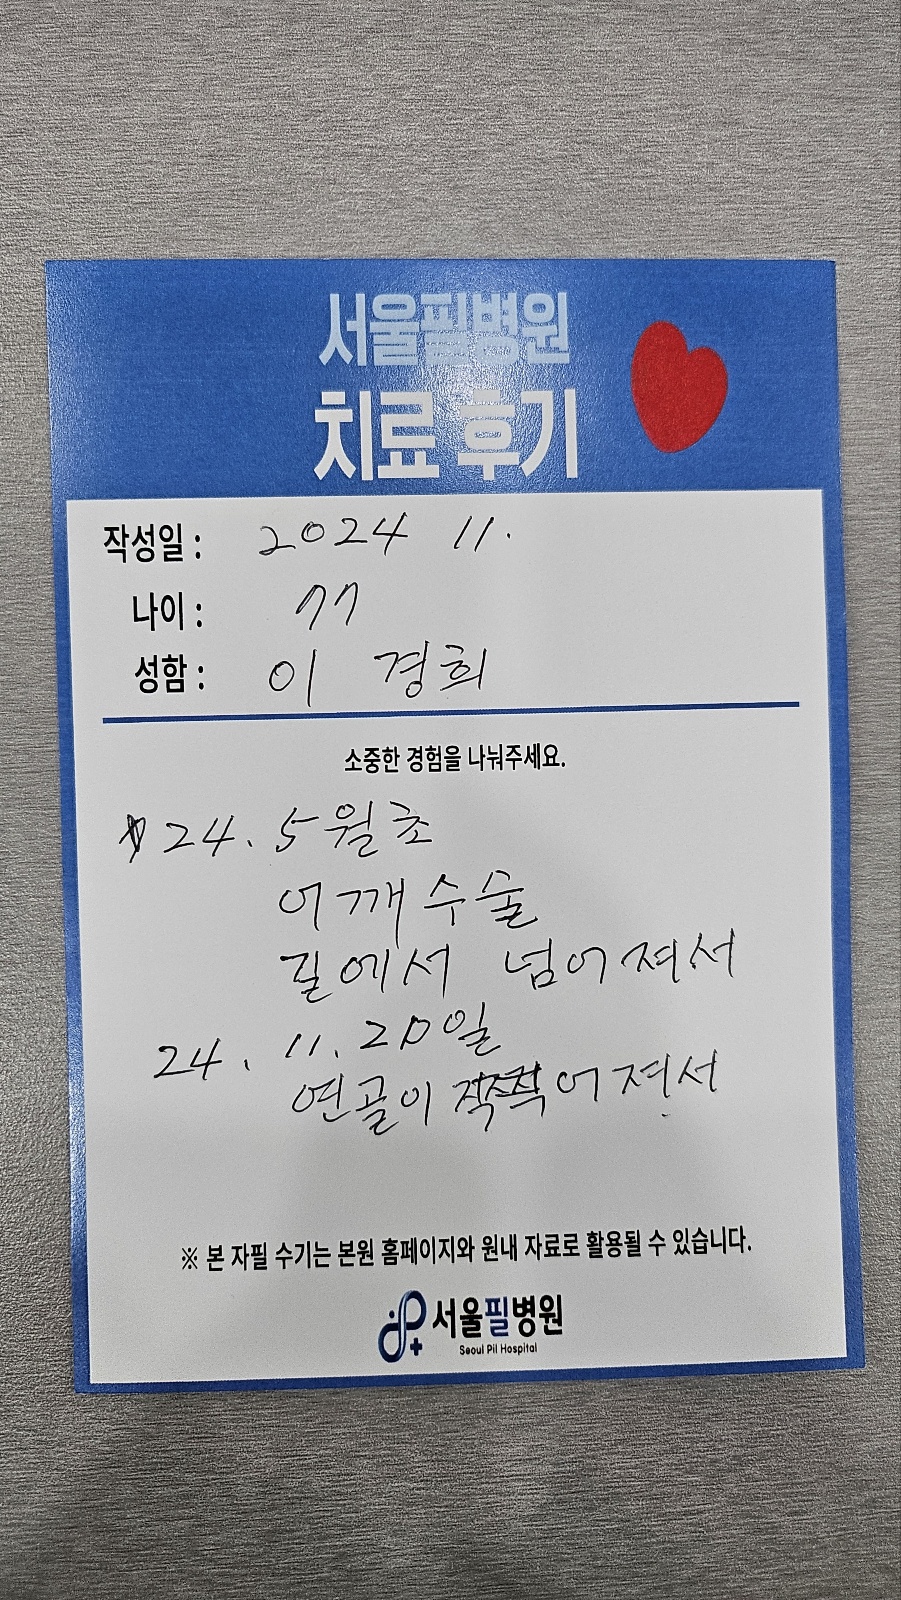 서울필병원
치료 후기
작성일 : 2024 11.
나이 : 77
성함 : 이 경희
소중한 경험을 나눠주세요.
24. 5월초
어깨수술
길에서 넘어져서
24. 11. 20일
연골이 어져서
※ 본 자필 수기는 본원 홈페이지와 원내 자료로 활용될 수 있습니다.
서울필병원
Seoul Pil Hospital